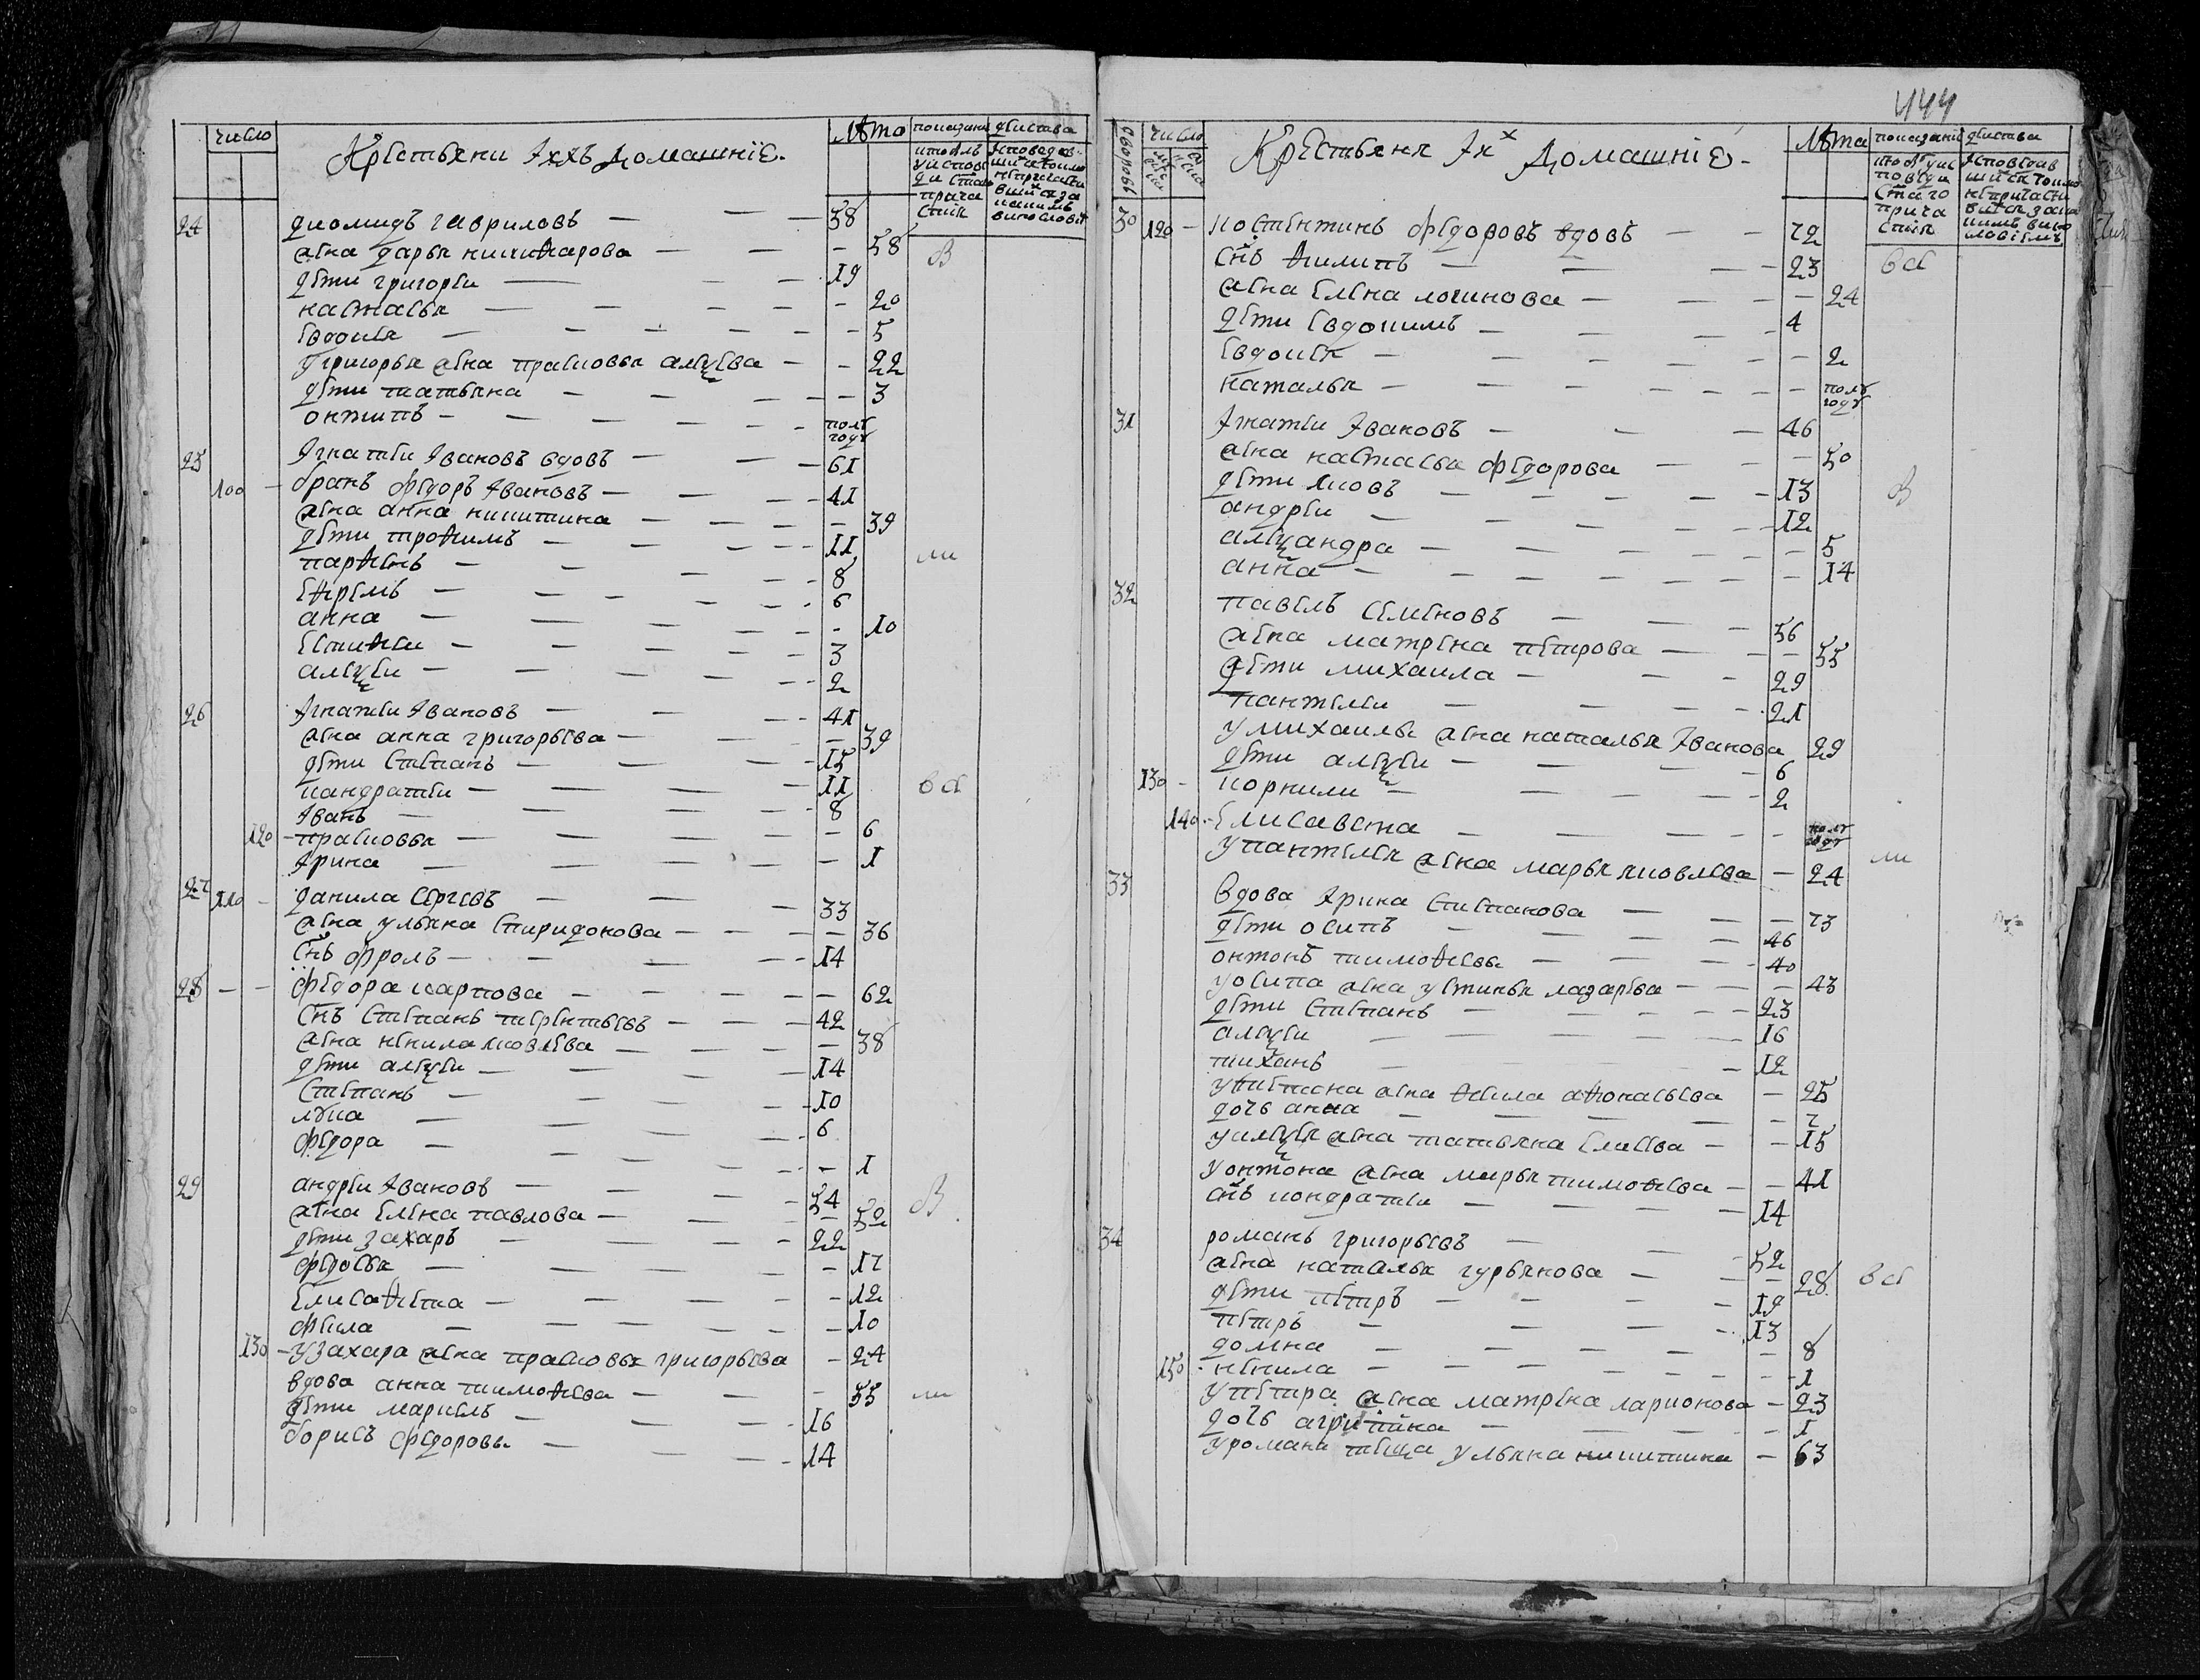 число
Крестьяни ихъ домашніе.
лѣто
показание действа
24 диомидъ гавриловъ — 38
жена дарья никиѳарова — 58
дети григореи — 19
настасья — 20
евдокея — 5
у григорья жена прасковья алеѯева — 22
дети татьяна — 3
онтипъ — полъ году
25 игнатеи ивановъ вдовъ — 61
100 — братъ федоръ ивановъ — 41
жена анна никитина — 39
дети троѳимъ — 11
парѳенъ — 8
еѳремъ — 6
анна — 10
естиѳеи — 3
алеѯеи — 2
26 игнатеи ивановъ — 41
жена анна григорьева — 39
дети степанъ — 15
кандратеи — 11
иванъ — 8
120 — прасковья — 6
ирина — 1
27 110 — данила сергеевъ — 33
жена ульяна спиридонова — 36
снъ фролъ — 14
28 — — федора карпова — 62
снъ степанъ терентьевъ — 42
жена ненила яковлева — 38
дети алеѯеи — 14
степанъ — 10
лука — 6
федора — 1
29 андреи ивановъ — 54
жена елена павлова — 52
дети захаръ — 22
федосья — 17
елисаѳета — 12
фекла — 10
130 — у захара жена прасковья григорьева — 24
вдова анна тимоѳеева — 55
дети маркелъ — 16
борисъ федоровы — 14
444
дворовъ
число
Крестьяня ихъ домашніе.
лѣта
показаниѣ действа
30 120 — костентинъ федоровъ вдовъ — 72
снъ ѳилипъ — 23
жена елена логинова — 24
дети евдокимъ — 4
евдокея — 2
наталья — полъ году
31 игнатеи ивановъ — 46
жена настасья федорова — 50
дети яковъ — 13
андреи — 12
алеѯандра — 5
анна — 14
32 павелъ семеновъ — 56
жена матрена петрова — 55
дети михаила — 29
пантелеи — 21
у михаилы жена наталья иванова 29
дети алеѯеи — 6
130 — корнили — 2
140 — елисавета — полъ году
у пантелея жена марья яковлева — 24
33 вдова ирина степанова — 73
дети осипъ — 46
онтонъ тимоѳеевы — 40
у осипа жена устинья лазарева — 43
дети степанъ — 23
алеѯеи — 16
тиханъ — 12
у степана жена ѳекла аѳонасьева — 25
дочь анна — 7
у алеѯея жена татьяна елесева — 15
у онтона жена марья тимоѳеева — 41
снъ кондратеи — 14
34 романъ григорьевъ — 52
жена наталья гурьянова — 28
дети петръ — 19
петръ — 13
домна — 8
150 — ненила — 1
у петра жена матрена ларионова — 23
дочь агрипина — 1
у романа теща ульяна никитина — 63